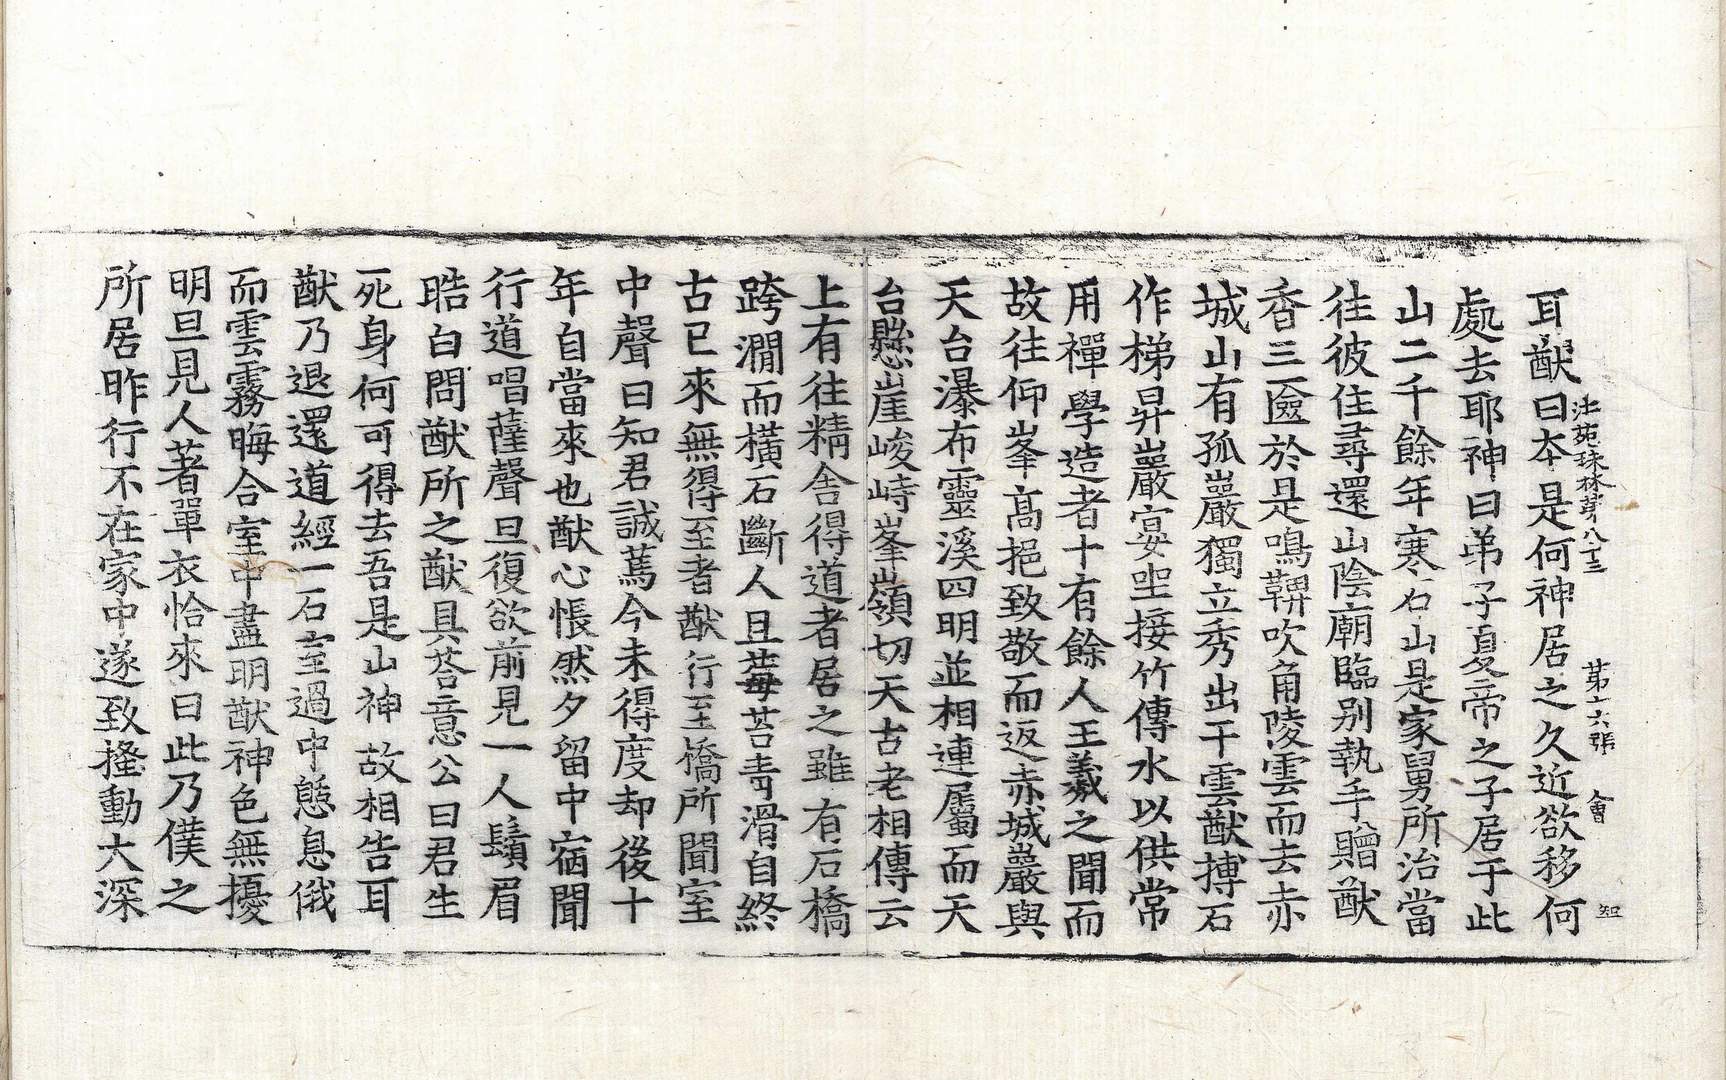 法苑珠林第八十三 第十六張 會 知
耳猷曰本是何神居之久近欲移何
處去耶神曰弟子夏帝之子居于此
山二千餘年寒石山是家舅所治當
往彼住尋還山陰廟臨別執手贈猷
香三匳於是鳴鞞吹角陵雲而去赤
城山有孤巖獨立秀出干雲猷搏石
作梯昇巖宴坐接竹傳水以供常
用禪學造者十有餘人王羲之聞而
故往仰峯高挹致敬而返赤城巖與
天台瀑布靈溪四明並相連屬而天
台懸崖峻峙峯嶺切天古老相傳云
上有往精舍得道者居之雖有石橋
跨澗而橫石斷人且莓苔青滑自終
古已來無得至者猷行至橋所聞室
中聲曰知君誠篤今未得度却後十
年自當來也猷心悵然夕留中宿聞
行道唱薩聲旦復欲前見一人鬚眉
晧白問猷所之猷具荅意公曰君生
死身何可得去吾是山神故相告耳
猷乃退還道經一石室過中憩息俄
而雲霧晦合室中盡明猷神色無擾
明旦見人著單衣恰來曰此乃僕之
所居昨行不在家中遂致搔動大深